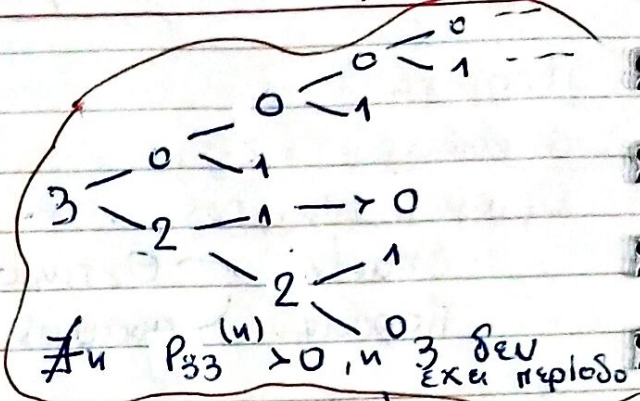 0 --
0 1 --
0 1
0 1
3 2 1 → 0
2 1
0
∄n P₃₃⁽ⁿ⁾ > 0, η 3 δεν
έχει περίοδο